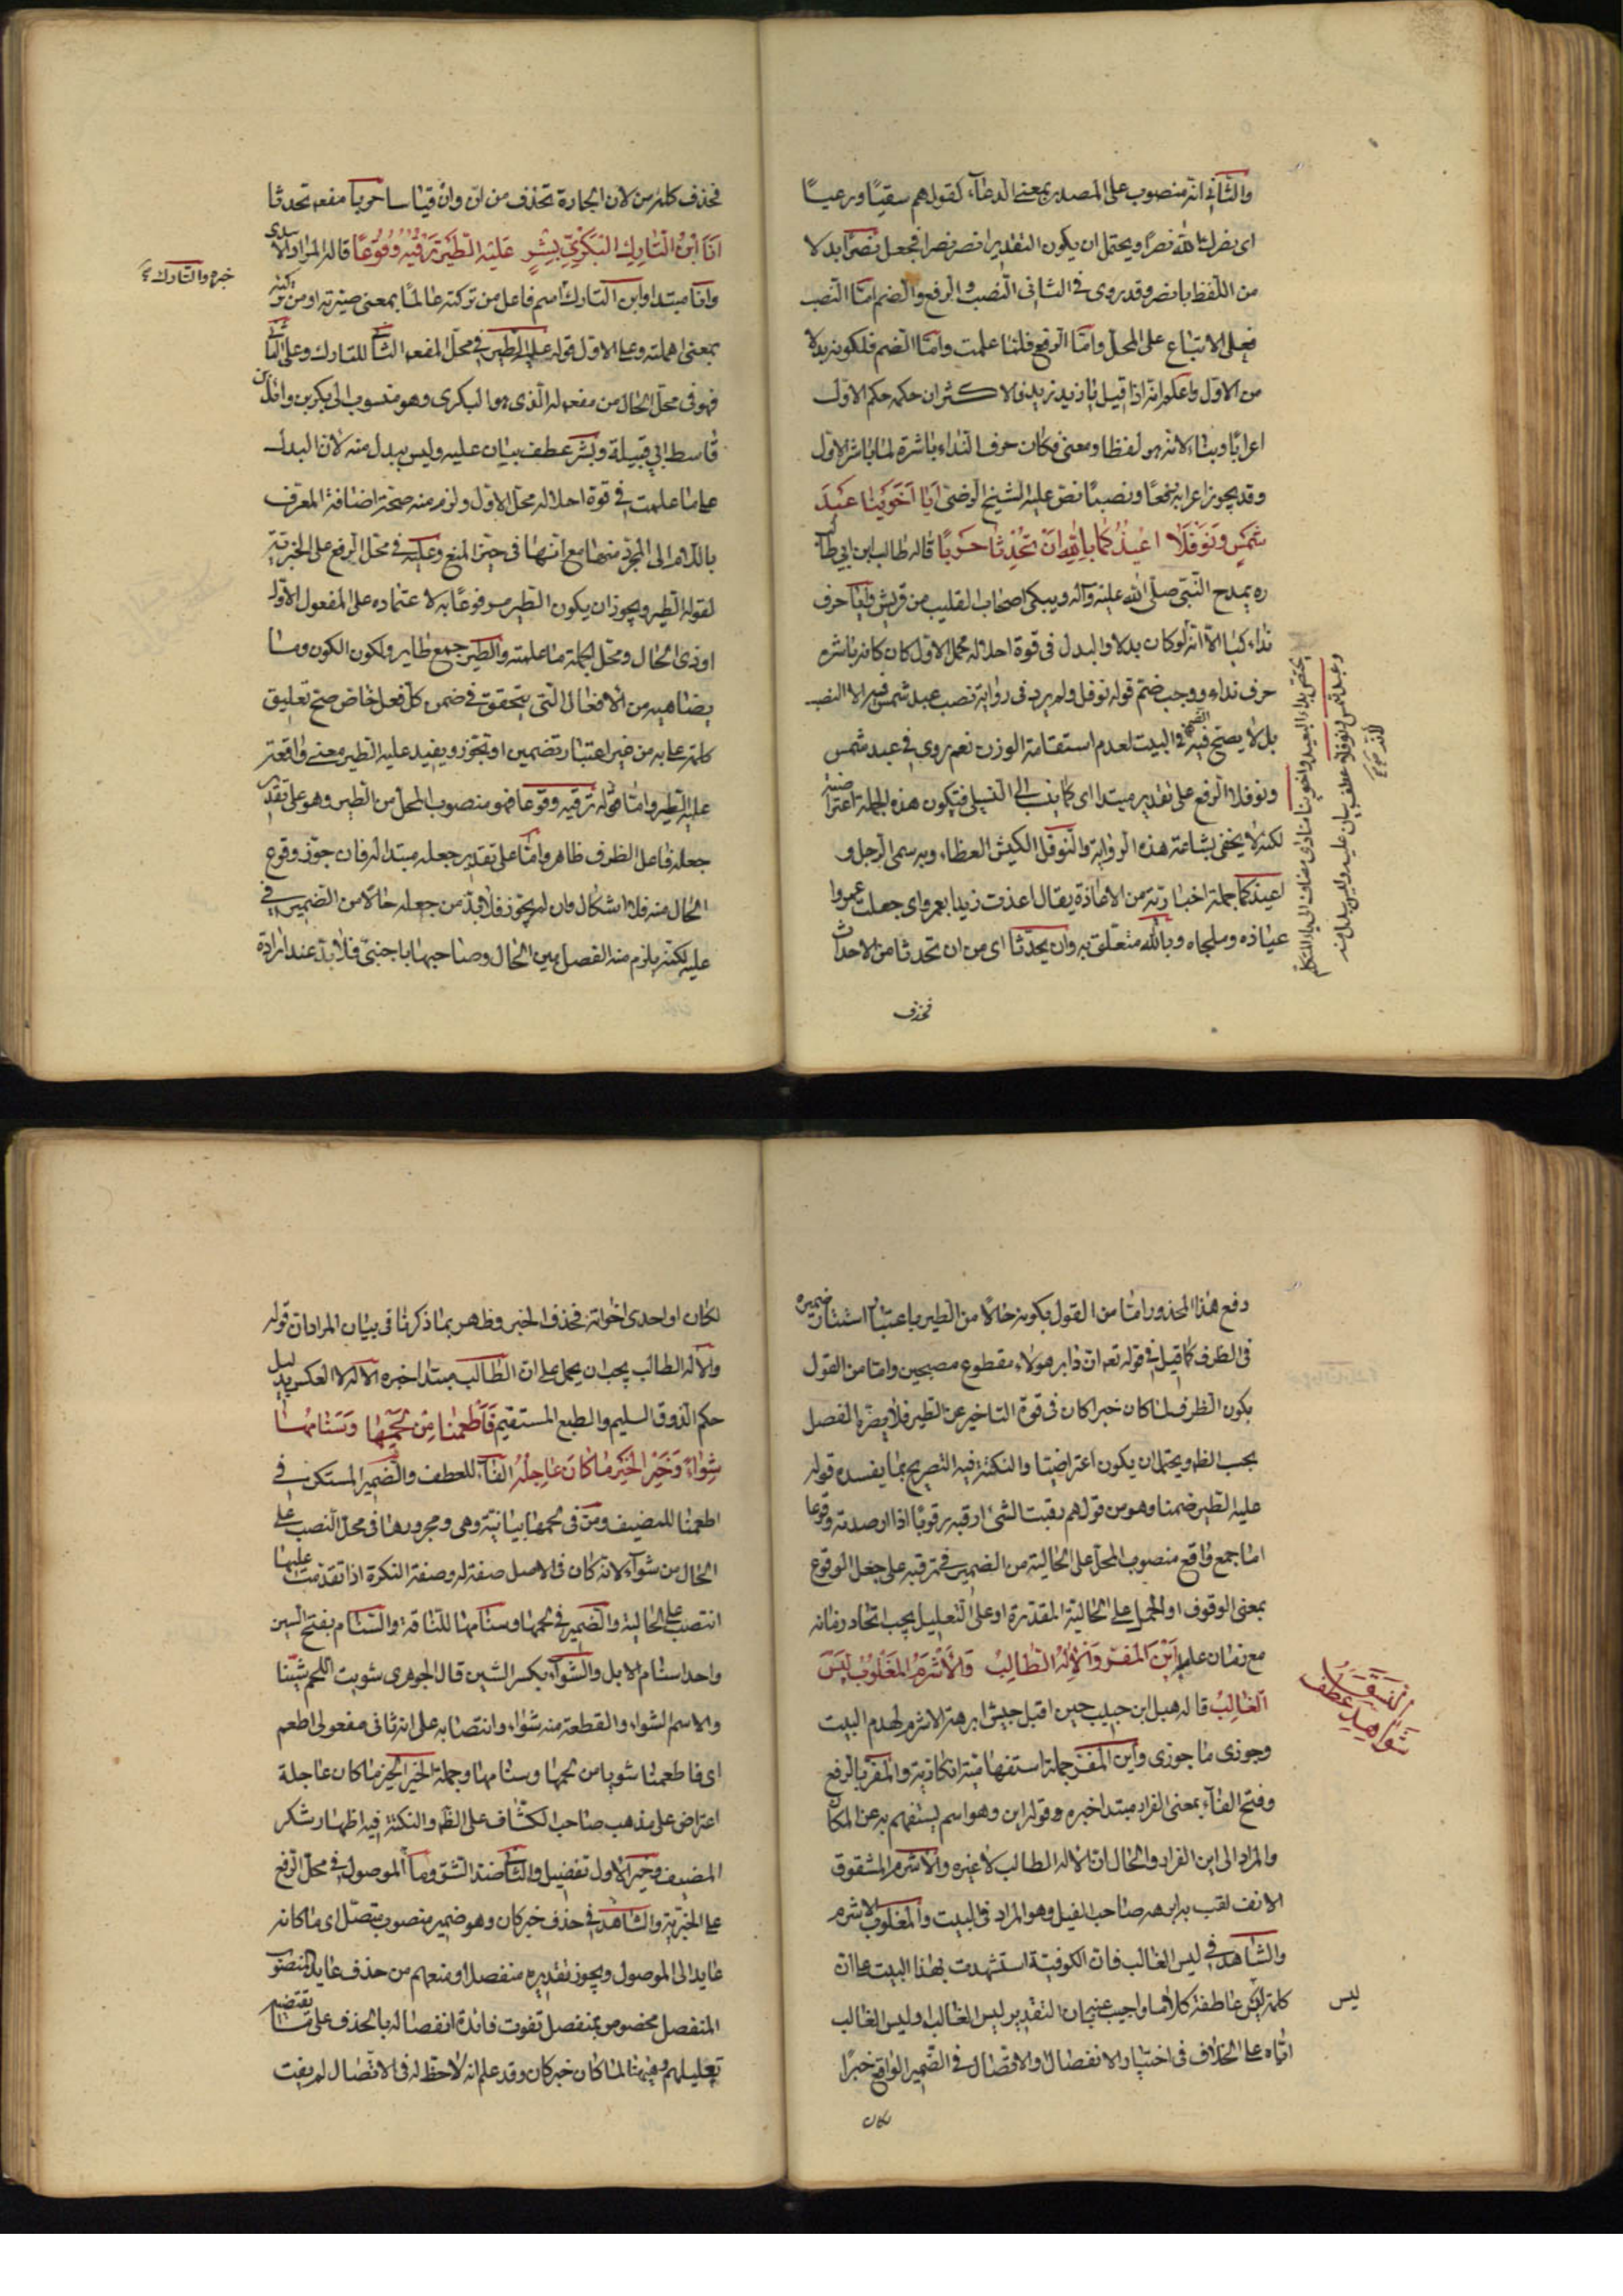 والثاني انه منصوب على المصدر بمعنى الدعاء كقولهم سقيًا ورعيًا
اى نصرك الله نصرًا ويحتمل ان يكون التقدير انصر نصرا فجعل نصرًا بدلا
من اللفظ بانصر وقد روى فى الثانى النصب والرفع والضم امّا النصب
فعلى الاتباع على المحل وامّا الرفع فلما علمت وامّا الضم فلكونه بدلا
من الاول واعلم انه اذا قيل يا زيد زيد فالاكثر ان حكمه حكم الاول
اعرابًا وبناء لانه هو لفظا ومعنى فكان حرف النداء باشرة لما باشر الاول
وقد يجوز اعرابه رفعًا ونصبًا نص عليه الشيخ الرضى اَيَا اَخَوَيْنَا عَبْدَ
شَمْسٍ وَنَوْفَلَا اُعِيْذُكُمَا بِاللهِ اَنْ تُحْدِثَا حَرْبًا قاله طالب ابن ابي طا
ره يمدح النبى صلى الله عليه وآله ويبكى اصحاب القليب من قريش وايا حرف
نداء كيا الّا انه لو كان بدلا والبدل فى قوة احلاله محل الاول كان كانه باشره
حرف نداء ووجب ضم قوله نوفل ولم يرد فى رواية نصب عبد شمس فيه الا النصب
بل لا يصح فيه الضم فى البيت لعدم استقامة الوزن نعم روى فى عبد شمس
ونوفلا الرفع على تقدير مبتدا اى فتكون هذه الجملة اعتراضية
لكنه لا يخفى بشاعة هذه الرواية والنوفل الكيش العظاء وبه سمى الرجل و
اعيذكما جملة اخبارية من الاعاذة يقال اعذت زيدا بعمرو اى جعلت عمروا
عياذه وملجاه وبالله متعلق به وان يحدثا اى من ان تحدثا من الاحداث
فحذف
يختص بنداء البعيد واخوينا منادى مضاف الى ياء المتكلم
وعبد شمس ونوفلا عطف بيان عليه وليس ببدل منه
فحذف كلمة من لان الجارة تحذف من ان وانّ قياسا حربا مفعول تحدثا
اَنَا ابْنُ التَّارِكِ الْبَكْرِيِّ بِشْرٍ عَلَيْهِ الطَّيْرُ تَرْقُبُهُ وُقُوْعًا قاله المراد الاسدى
وانا مبتدا وابن التارك اسم فاعل من تركته عالمًا بمعنى صيرته او من تركته
بمعنى اهملته وعلى الاول قوله عليه الطير في محل المفعول الثانى للتارك وعلى الثانى
فهو فى محل الحال من مفعوله الذى هو البكرى وهو منسوب الى بكر بن وائل بن
قاسط ابي قبيلة وبشر عطف بيان عليه وليس ببدل منه لان البدل
على ما علمت فى قوة احلاله محل الاول ولزم منه صحة اضافة المعرف
باللام الى المجرد منها مع انها فى حيز المنع وعليه فى محل الرفع على الخبرية
لقوله الطير ويجوز ان يكون الطير مرفوعًا به لاعتماده على المفعول الاول
او ذى الحال ومحل الجملة ما علمته والطير جمع طاير ولكون الكون وما
يضاهيه من الافعال التى يتحقق فى ضمن كل فعل خاص صح تعليق
كلمة على به من غير اعتبار تضمين او تجوز ويفيد عليه الطير معنى واقعة
عليه الطير وامّا قوله ترقبه وقوعا فهو منصوب المحل من الطير وهو على تقدير
جعله فاعل الظرف ظاهر وامّا على تقدير جعله مبتدا له فان جوز وقوع
الحال منه فلا اشكال وان لم يجوز فلا بد من جعله حالا من الضمير فى
عليه لكنه يلزم منه الفصل بين الحال وصاحبها باجنبى فلا بد عند ارادة
خبره والتارك
دفع هذا المحذور امّا من القول بكونه حالا من الطير باعتبار استتار ضميره
فى الظرف كما قيل فى قوله تعه ان دابر هولاء مقطوع مصبحين وامّا من القول
بكون الظرف لما كان خبرا كان فى قوة التاخير عن الطير فلا يضره الفصل
بحسب الظه ويحتمل ان يكون اعتراضيّا والنكتة فيه التصريح بما يفسده قوله
عليه الطير ضمنا وهو من قولهم رقبت الشئ ارقبه رقوبًا اذا ارصدته وقوعا
امّا جمع واقع منصوب المحل على الحالية من الضمير فى ترقبه على جعل الوقوع
بمعنى الوقوف او الحمل على الحالية المقدرة او على التعليل يجب اتحاد زمانه
مع زمان عامله اَيْنَ الْمَفَرُّ وَالْاِلٰهُ الطَّالِبُ وَالْاَشْرَمُ الْمَغْلُوْبُ لَيْسَ
الْغَالِبُ قاله نفيل ابن حبيب حين اقبل جيش ابرهة الاشرم لهدم البيت
وجوزى ما جوزى واين المفر جملة استفهامية انكارية والمفر بالرفع
وفتح الفاء بمعنى الفرار مبتدا خبره قوله اين وهو اسم يستفهم به عن المكان
والمراد الى اين الفرار والحال ان الاله الطالب لا غيره والاشرم المشقوق
الانف لقب به ابرهه صاحب الفيل وهو المراد فى البيت والمغلوب الاشرم
والشاهد فى ليس الغالب فان الكوفية استشهدت بهذا البيت على ان
كلمة ليس عاطفة كلا فيما واجيب عنه بان التقدير ليس الغالب او ليس الغالب
اياه على الخلاف فى اختيار الانفصال والاتصال فى الضمير الواقع خبرًا
لكان
شواهد عطف النسق
ليس
لكان او احدى اخواته فحذف الخبر وظهر بما ذكرنا فى بيان المراد ان قوله
والاله الطالب يجب ان يحمل على ان الطالب مبتدا خبره الاله لا العكس بدليل
حكم الذوق السليم والطبع المستقيم فَاَطْعَمَنَا مِنْ لَحْمِهَا وَسَنَامِهَا
شِوَاءً وَخَيْرُ الْخَيْرِ مَا كَانَ عَاجِلُهُ الفاء للعطف والضمير المستكن فى
اطعمنا للمضيف ومن فى لحمها بيانية وهى ومجرورها فى محل النصب على
الحال من شواء لانه كان فى الاصل صفة له وصفة النكرة اذا تقدمت عليها
انتصب على الحالية والضمير فى لحمها وسنامها للناقة والسنام بفتح السين
واحد اسنام الابل والشواء بكسر الشين قال الجوهرى شويت اللحم شيّا
والاسم الشواء والقطعة منه شواة وانتصابه على انه ثانى مفعولى اطعم
اى فاطعمنا شويا من لحمها وسنامها وجملة الخير الخير ما كان عاجلة
اعتراض على مذهب صاحب الكشاف على الظه والنكتة فيه اظهار شكر
المضيف وخير الاول تفضيل والثانى ضد الشر وما الموصول فى محل الرفع
على الخبرية والشاهد فى حذف خبر كان وهو ضمير منصوب متصل اى ما كانه
عايد الى الموصول ويجوز تقديره منفصلا ومنعهم من حذف عايد المنصوب
المنفصل مخصوص بمنفصل تفوت فائدة انفصاله بالحذف على ما يقتضيه
تعليلهم وههنا لما كان خبر كان وقد علم انه لاحظ له فى الاتصال لم يفت